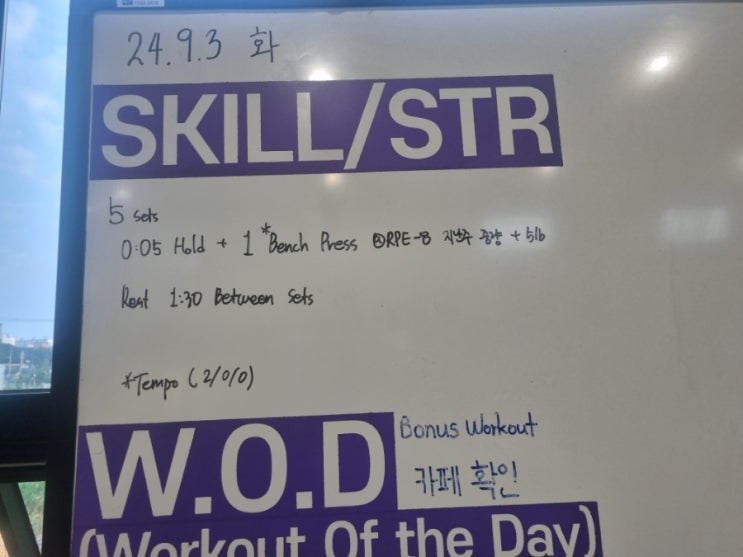 24.9.3 화
SKILL/STR
5 Sets
0:05 Hold + 1 *Bench Press @RPE-8 지난주 중량 + 5lb
Rest 1:30 Between Sets
*Tempo (2/0/0)
W.O.D
Bonus Workout
카페 확인
(Workout Of the Day)